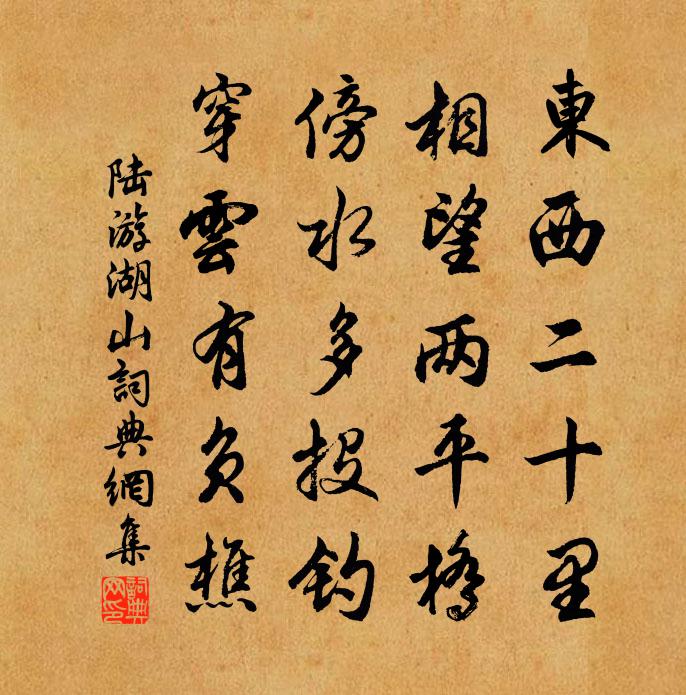 東西二十里
相望两平橋
傍水多投釣
穿雲有負樵
陆游湖山詞典網集
詞典网印